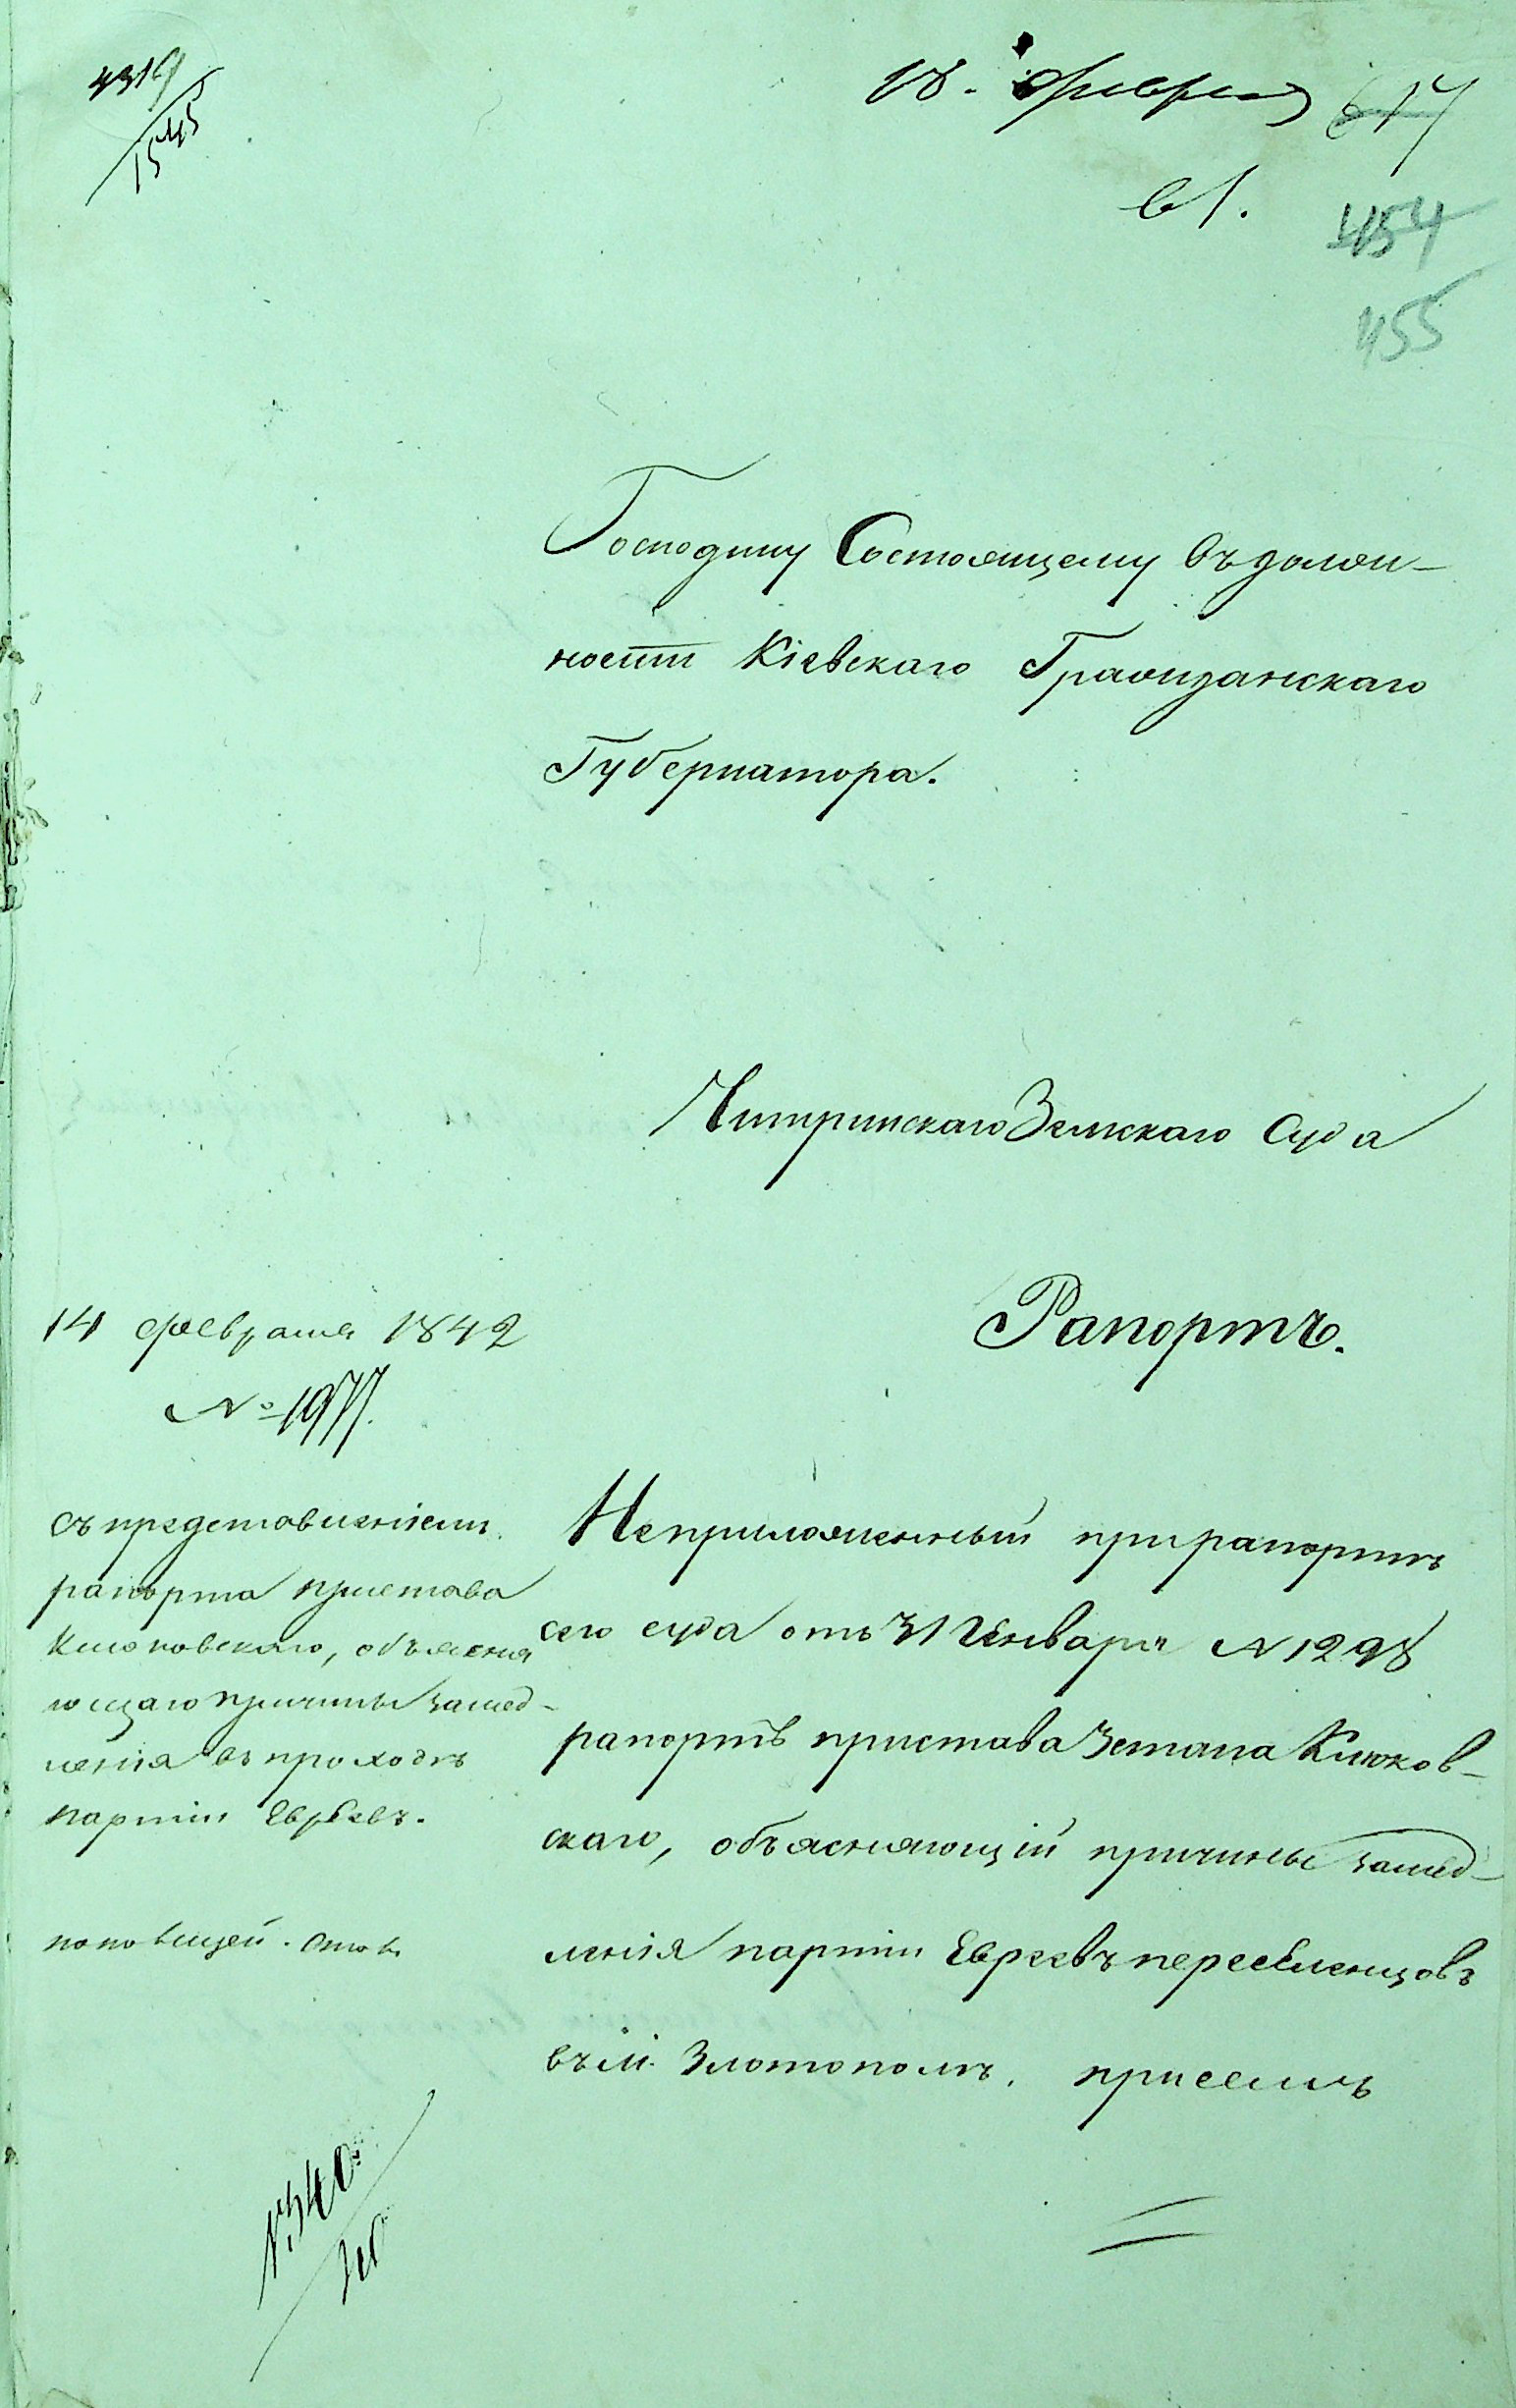 4319
1545
18. февраля
617
454
455
Господину Состоящему въ долж-
ности Кіевскаго Гражданскаго
Губернатора.
Чигринскаго Земскаго Суда
Рапортъ.
14 февраля 1842
№ 1977.
съ представленіемъ
рапорта пристава
Клюковскаго, объясня
ющаго причины замед-
ленія въ проходѣ
партіи Евреевъ.
Неприложенный при рапортѣ
сего суда отъ 31 Генваря № 1298
рапортъ пристава 3 стана Клюков-
скаго, объясняющій причины замед-
ленія партіи Евреевъ переселенцовъ
въ м. Златополѣ, при семъ